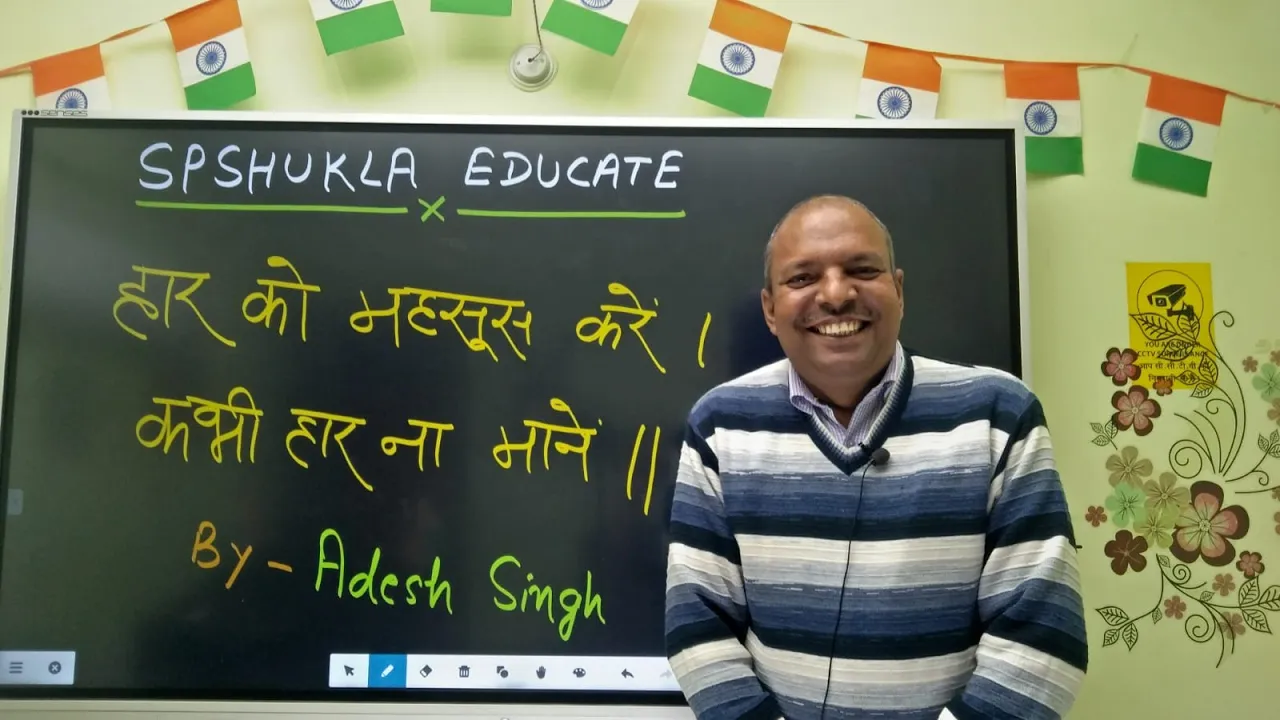 senses
SPSHUKLA EDUCATE
हार को महसूस करें ।
कभी हार ना मानें ॥
By - Adesh Singh
YOU ARE UNDER
CCTV SURVEILLANCE
आप सी.सी.टी.वी.